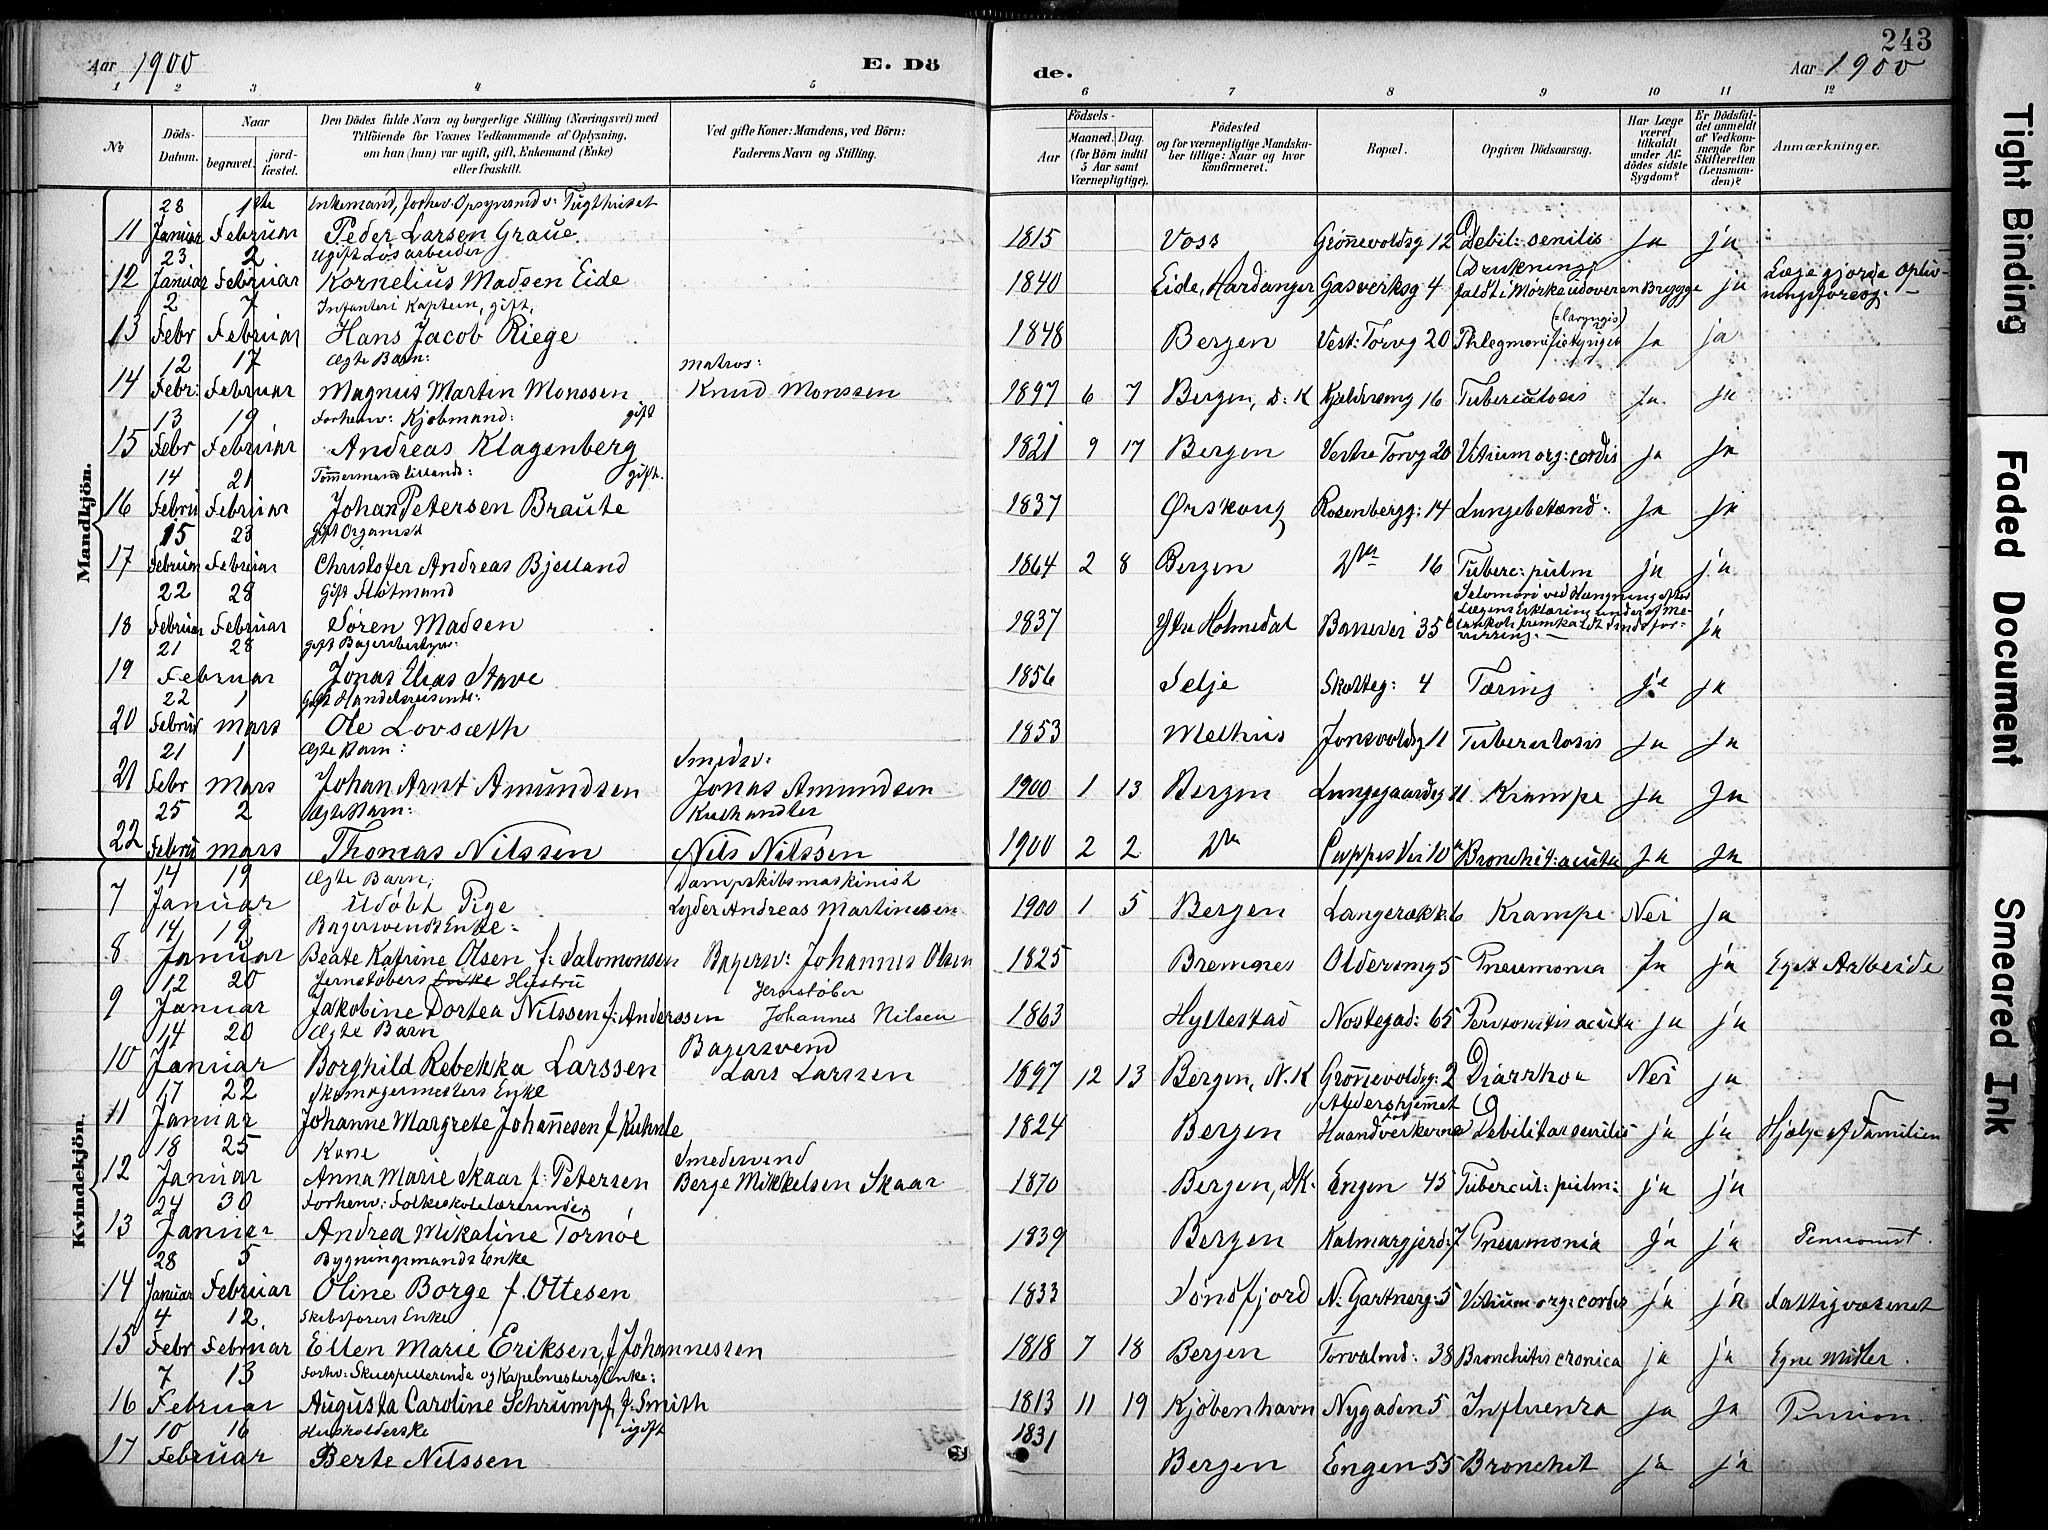 243
Aar 1900 E. Dö de. Aar 1900
1 2 3 4 5 6 7 8 9 10 11 12
No. Döds-Datum. Naar begravet. jordfæstet. Den Dödes fulde Navn og borgerlige Stilling (Næringsvei) med Tilföiende for Voxnes Vedkommende af Oplysning, om han (hun) var ugift, gift, Enkemand (Enke) eller fraskilt. Ved gifte Koner: Mandens, ved Börn: Faderens Navn og Stilling. Födsels- Aar Maaned. Dag. (for Börn indtil 5 Aar samt Værnepligtige). Födested og for værnepligtige Mandskaber tillige: Naar og hvor konfirmeret. Bopæl. Opgiven Dödsaarsag. Har Læge været tilkaldt under Afdödes sidste Sygdom? Er Dödsfaldet anmeldt af Vedkommende for Skifteretten (Lensmanden)? Anmærkninger.
Mandkjön.
28 1ste Enkemand, forhv. Opsynsmd v: Tugthuset
11 Januar Februar Peder Larsen Graue 1815 Voss Grönnevoldsg 12 Debil: senilis Ja ja
23 2 Ugift Løsarbeider
12 Januar Februar Kornelius Madsen Eide 1840 Eide, Hardanger Gasverksg 4 (Drukning) faldt i Mørke udover en Brygge ja Læge gjorde oplivningsforsøg. —
2 7 Infanteri Kaptein, gift.
13 Febr Februar Hans Jacob Riege 1848 Bergen Vest: Torvg 20 (=laryngis) Ja ja
12 17 Ægte Barn: matros:
14 Febr: Februar Magnus Martin Monssen Knud Monssen 1897 6 7 Bergen, d: K Kjeldersmg 16 Tuberculosis Ja Ja
13 19 Forhenv: Kjöbmand: gift
15 Febr Februar Andreas Klagenberg 1821 9 17 Bergen Vestre Torvg 20 Vitium org: cordis ja ja
14 21 Tømmermand gift.
16 Febru Februar Johan Petersen Braute 1837 Ørskoug Rosenbergg: 14 Lungebetænd: Ja ja
15 23 gift Organist
17 Februar Februar Christofer Andreas Bjelland 1864 2 8 Bergen Do 16 Tuberc: pulm ja ja
22 28 Gift Fløtmand
18 Februar Februar Sören Madsen 1837 Ytre Holmedal Banevei 35 Selvmord ved Hængning efter Lægens Erklæring under af Melankoli fremkaldt Sindsforvirring. — ja
21 28 gift Bagerbestyrer:
19 Februar Jonas Elias Stave 1856 Selje Skotteg: 4 Tæring ja ja
22 1 Gift Handelsreisende:
20 Februar Mars Ole Lovsæth 1853 Melhus Jonsvoldsg 11 Tuberculosis Ja Ja
21 1 Ægte Barn: Smedsv:
21 Febr Mars Johan Arnt Amundsen Jonas Amundsen 1900 1 13 Bergen Lungegaardsg 11 Krampe Ja Ja
25 2 Ægte Barn: Kulhandler
22 Februar Mars Thomas Nilssen Nils Nilssen 1900 2 2 Do Cappes Vei 10a Bronchit: acuta Ja Ja
Kvindekjön.
14 19 Ægte Barn, Dampskibsmaskinist
7 Januar Udöbt Pige Lyder Andreas Martinssen 1900 1 5 Bergen Langerækk: 6 Krampe Nei Ja
14 19 Bagersvends Enke:
8 Januar Beate Katrine Olsen f: Salomonsen Bagersv: Johannes Olsen 1825 Bremnes Oldersmg 5 Pneumonia Ja ja Eget Arbeide
12 20 Jernstøbers Enke Hustru Jernstøber
9 Januar Jakobine Dortea Nilssen f: Anderssen Johannes Nilsen 1863 Hyllestad Nøstegad: 65 Peritonitis acuta ja ja
14 20 Ægte Barn Bagersvend
10 Januar Borghild Rebekka Larssen Lars Larssen 1897 12 13 Bergen, N. K Grönnevoldsg: 2 Diarrhoe Nei ja
17 22 Skomagermesters Enke
11 Januar Johanne Margrete Johannesen f Kuhnle 1824 Bergen Aldershjemmet for Haandverkerne Debilitas senilis ja ja Hjælp af Familien
18 25 Kone Smedsvend
12 Januar Anna Marie Skaar f: Petersen Berge Mikkelsen Skaar 1870 Bergen, DK. Engen 45 Tubercul: pulm: ja ja
24 30 Forhenv: Folkeskolelærerinde
13 Januar Andrea Mikaline Tornöe 1839 Bergen Kalmargjerd: 7 Pneumonia Ja ja Pensionist.
28 5 Bygningsmands Enke
14 Januar Februar Oline Borge f. Ottesen 1833 Söndfjord N. Gartnerg: 5 Vitium org: cordis ja ja Fattigvæsenet
4 12. Skibsförers Enke
15 Febr Februar Ellen Marie Eriksen, f Johannessen 1818 7 18 Bergen Torvalmd: 38 Bronchitis cronica ja ja Egne Midler.
7 13 Forhv: Skuespillerinde og Kapelmesters Enke:
16 Februar Augusta Caroline Schrumpf, f. Smith 1813 11 19 Kjöbenhavn Nygaden 5 Influenza ja Ja Pension.
10 16 Husholderske ugift
17 Februar Berte Nilssen 1831 Bergen Engen 55 Bronchit ja ja
Tight Binding
Faded Document
Smeared Ink